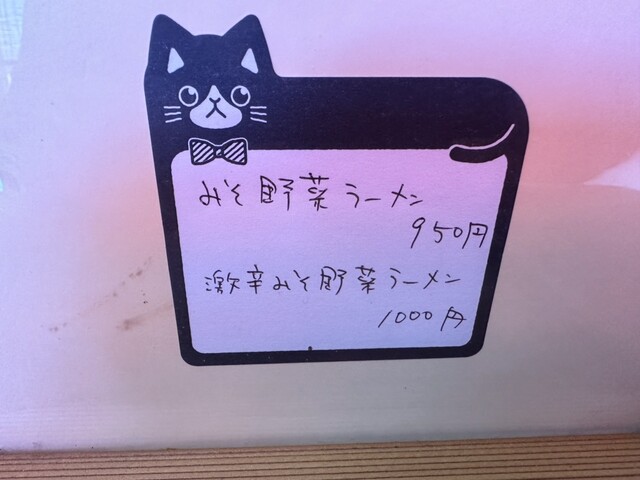 みそ野菜ラーメン
950円
激辛みそ野菜ラーメン
1000円